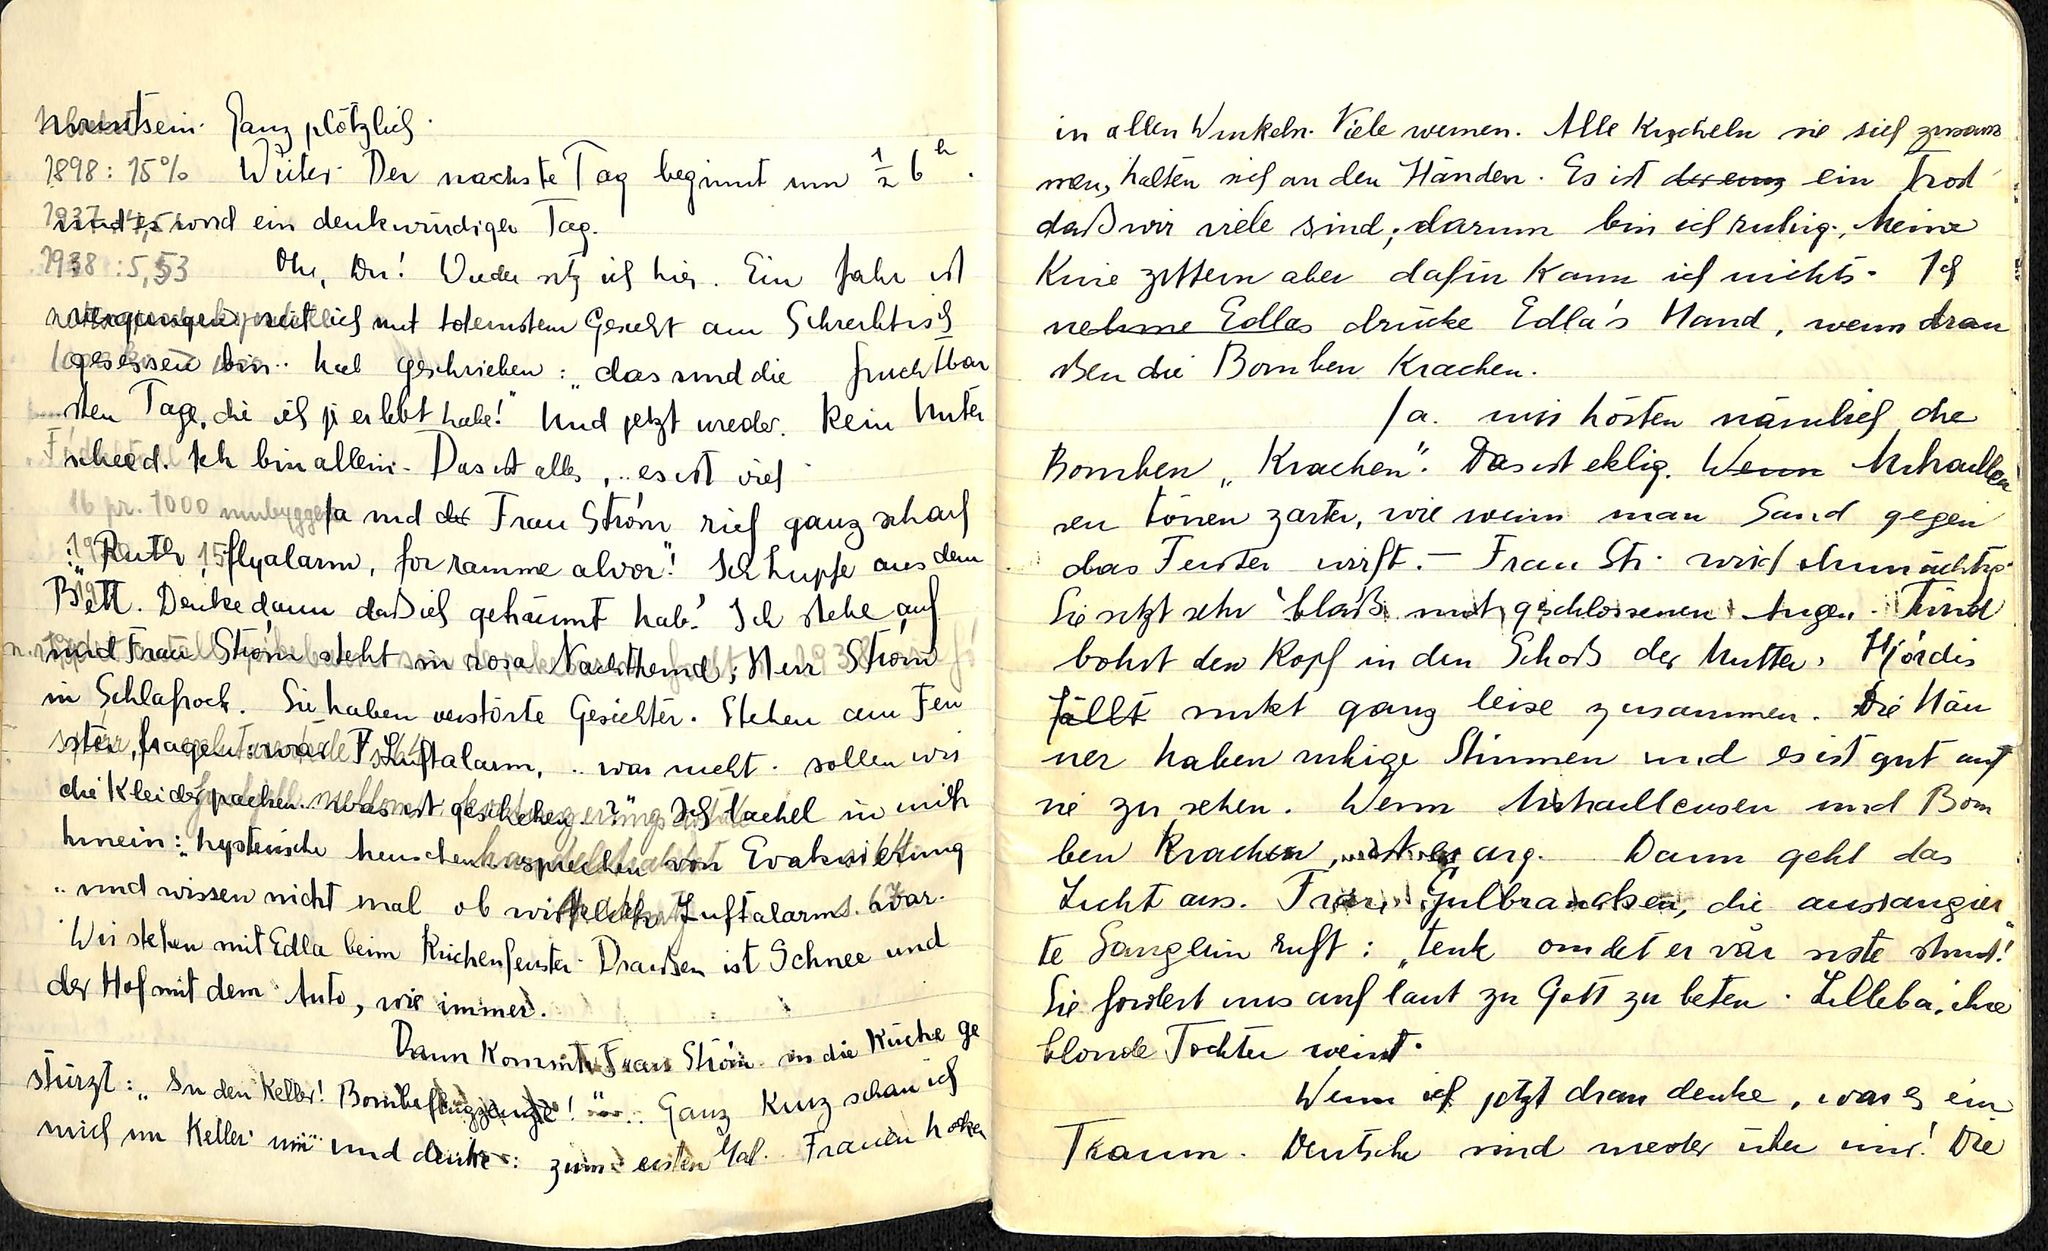 Ganz plötzlich.
1898: 15% Weiter. Der nächste Tag beginnt um ½ 6 h.
1937: und es wird ein denkwürdiger Tag.
1938: 5,53 Oh, Du! Wieder sitz ich hier. Ein Jahr ist
vergangen seit ich mit toternstem Gesicht am Schreibtisch
gesessen bin.. hab geschrieben: „das sind die furchtbar
sten Tage, die ich je erlebt habe!" Und jetzt wieder. Kein Unter
schied. Ich bin allein. Das ist alles, .. es ist viel.
16 pr. 1000 Ja und der Frau Ström rief ganz scharf
„Ruth, flyalarm, for ramme alvor"! Ich hupfe aus dem
Bett. Denke dann daß ich geträumt hab! Ich stehe auf
und Frau Ström steht in rosa Nachthemd; Herr Ström
in Schlafrock. Sie haben verstörte Gesichter. Stehen am Fen
ster, fragen: war Luftalarm, .. was nicht. sollen wir
die Kleider packen. Was ist geschehen..?" Ich lachel in mich
hinein: „hysterische Menschen sprechen von Evakuierung
.. und wissen nicht mal ob wirklich Luftalarm war.
Wir stehen mit Edla beim Küchenfenster. Draußen ist Schnee und
der Hof mit dem Auto, wie immer.
Dann kommt Frau Ström in die Küche ge
stürzt: „In den Keller! Bombeflugzeuge!".. Ganz kurz schau ich
mich im Keller um und denke: zum ersten Mal. Frauen hocken
in allen Winkeln. Viele weinen. Alle kuscheln sie sich zusam
men, halten sich an den Händen. Es ist ein Trost
daß wir viele sind; darum bin ich ruhig. Meine
Knie zittern aber dafür kann ich nichts. Ich
nehme Edlas drücke Edla's Hand, wenn drau
ßen die Bomben krachen.
Ja. wir hörten nämlich die
Bomben „Krachen". Das ist eklig. Wenn Mitrailleu
sen tönen zarter, wie wenn man Sand gegen
das Fenster wirft. – Frau Str. wird ohnmächtig.
Sie sitzt sehr blaß mit geschlossenen Augen.
bohrt den Kopf in den Schoß der Mutter. Hjördis
fällt sinkt ganz leise zusammen. Die Män
ner haben ruhige Stimmen und es ist gut auf
sie zu sehen. Wenn Mitrailleusen und Bom
ben krachen, ist es arg. Dann geht das
Licht aus. Frau Gulbrandsen, die ausrangier
te Sängerin ruft: „tenk om det er vår siste stund!"
Sie fordert uns auf laut zu Gott zu beten. Lilleba, ihre
blonde Tochter weint.
Wenn ich jetzt dran denke, war es ein
Traum. Deutsche sind wieder über mir! Die